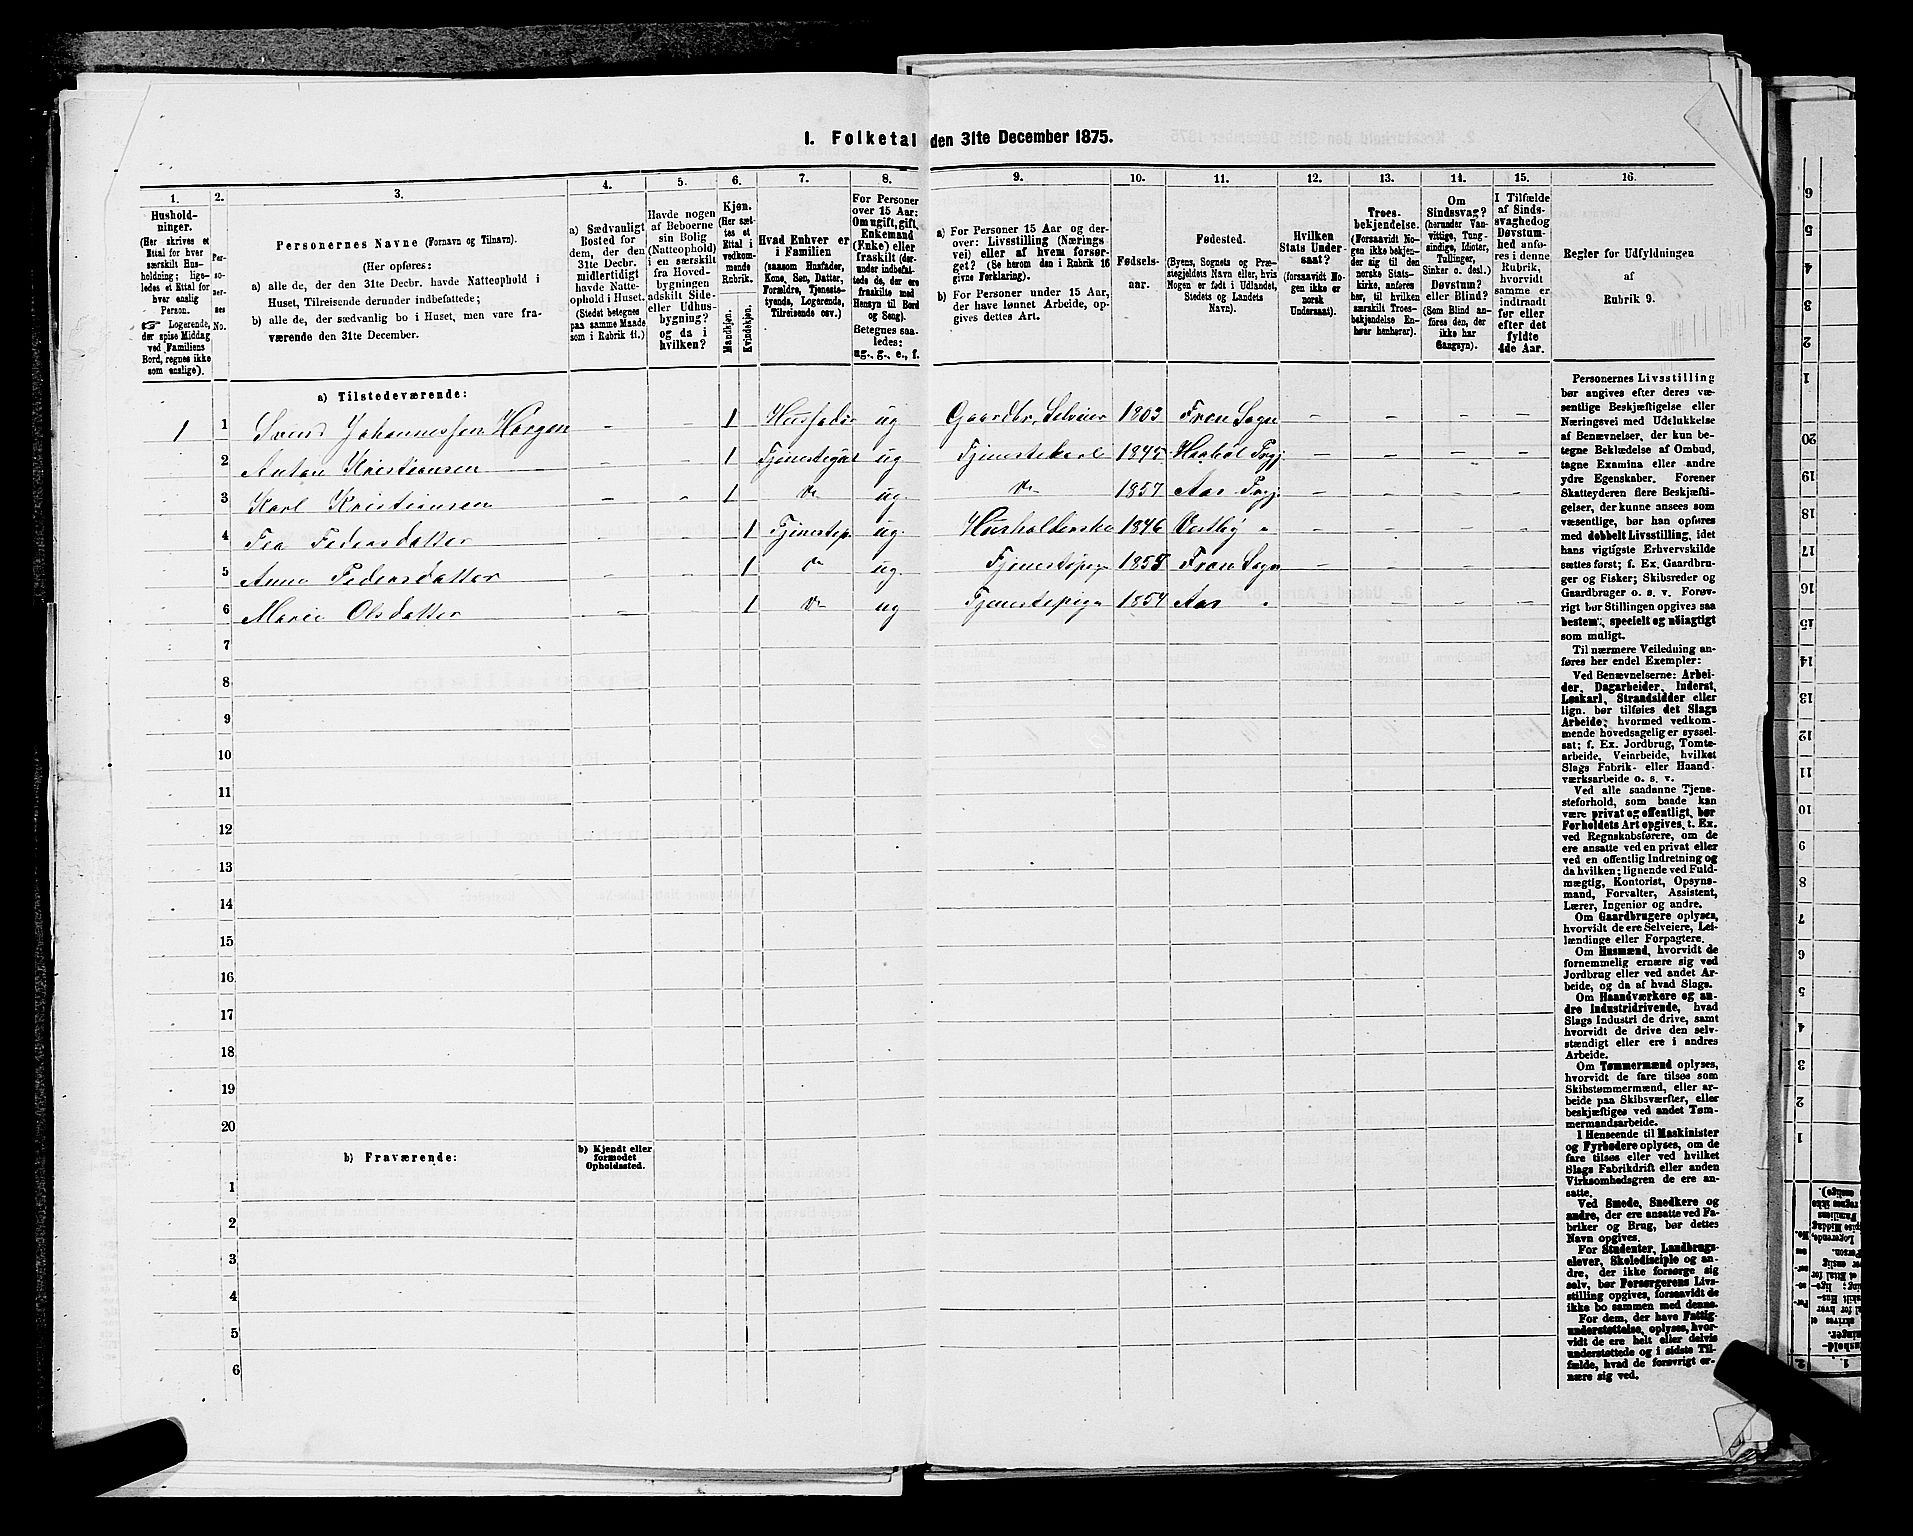 1. Folketal den 31te December 1875.
1. 2. 3. 4. 5. 6. 7. 8. 9. 10. 11. 12. 13. 14. 15. 16.
Hushold-
ninger.
(Her skrives et
Ettal for hver
særskilt Hus-
holdning; lige-
ledes et Ettal for
hver enslig
Person.
☞ Logerende,
der spise Middag
ved Familiens
Bord, regnes ikke
som enslige).
Per-
so-
ner-
nes
No.
Personernes Navne (Fornavn og Tilnavn).
(Her opføres:
a) alle de, der den 31te Decbr. havde Natteophold i
Huset, Tilreisende derunder indbefattede;
b) alle de, der sædvanlig bo i Huset, men vare fra-
værende den 31te December.
a) Sædvanligt
Bosted for
dem, der den
31te Decbr.
midlertidigt
havde Natte-
ophold i Huset.
(Stedet betegnes
paa samme Maade
som i Rubrik 11.)
Havde nogen
af Beboerne
sin Bolig
(Natteophold)
i en særskilt
fra Hoved-
bygningen
adskilt Side-
eller Udhus-
bygning?
og da i
hvilken?
Kjøn.
(Her sæt-
tes et
Ettal i
vedkom-
mende
Rubrik.
Mandkjøn.
Kvindekjøn.
Hvad Enhver er
i Familien
(saasom Husfader,
Kone, Søn, Datter,
Forældre, Tjeneste-
tyende, Logerende,
Tilreisende osv.)
For Personer
over 15 Aar:
Om ugift, gift,
Enkemand
(Enke) eller
fraskilt (der-
under indbefat-
tede de, der ere
fraskilte med
Hensyn til Bord
og Seng).
Betegnes saa-
ledes:
ug., g., e., f.
a) For Personer 15 Aar og der-
over: Livsstilling (Nærings-
vei) eller af hvem forsør-
get? (Se herom den i Rubrik 16
givne Forklaring).
b) For Personer under 15 Aar,
der have lønnet Arbeide, op-
gives dettes Art.
Fødsels-
aar.
Fødested.
(Byens, Sognets og Præ-
stegjeldets Navn eller, hvis
Nogen er født i Udlandet,
Stedets og Landets
Navn).
Hvilken
Stats Under-
saat?
(forsaavidt No-
gen ikke er
norsk
Undersaat).
Troes-
bekjendelse.
(Forsaavidt No-
gen ikke bekjen-
der sig til den
norske Stats-
kirke, anføres
her, til hvilken
særskilt Troes-
bekjendelse En-
hver henhører).
Om
Sindssvag?
(herunder Van-
vittige, Tung-
sindige, Idioter,
Tullinger,
Sinker o. desl.)
Døvstum?
eller Blind?
(Som Blind an-
føres den, der
ikke har
Gangsyn).
I Tilfælde
af Sinds-
svaghed og
Døvstum-
hed anfø-
res i denne
Rubrik,
hvorvidt
samme er
indtraadt
før eller
efter det
fyldte
4de Aar.
Regler for Udfyldningen
af
Rubrik 9.
a) Tilstedeværende:
1 1 Svend Johannessen Haugen - - 1 Husfader ug Gaardbr, Selveier 1803 Fron Sogn - - - -
2 Anton Kristiansen 1 ug Tjenestekarl 1845 - - - -
3 Karl Kristiansen - - 1 do ug. do 1857 Aas Prgj - - - -
4 1 Tjenestep. ug. 1846 Vestby " - - - -
5 Anne Pedersdatter - - 1 do ug. Tjenestepige 1855 Fron Sogn - - - -
6 Marie Olsdatter - - 1 do ug Tjenestepige 1854 Aas " - - - -
7
8
9
10
11
12
13
14
15
16
17
18
19
20
b) Fraværende:
b) Kjendt eller
formodet
Opholdssted.
1
2
3
4
5
6
Personernes Livsstilling
bør angives efter deres væ-
sentlige Beskjæftigelse eller
Næringsvei med Udelukkelse
af Benævnelser, der kun be-
tegne Beklædelse af Ombud,
tagne Examina eller andre
ydre Egenskaber. Forener
Skatteyderen flere Beskjæfti-
gelser, der kunne ansees som
væsentlige, bør han opføres
med dobbelt Livsstilling, idet
hans vigtigste Erhvervskilde
sættes først; f. Ex. Gaardbru-
ger og Fisker; Skibsreder og
Gaardbruger o. s. v. Forøv-
rigt bør Stillingen opgives saa
bestemt, specielt og nøiagtigt
som muligt.
Til nærmere Veiledning an-
føres her endel Exempler:
Ved Benævnelserne: Arbei-
der, Dagarbeider, Inderst,
Løskarl, Strandsidder eller
lign. bør tilføies det Slags
Arbeide, hvormed vedkom-
mende hovedsagelig er syssel-
sat; f. Ex. Jordbrug, Tomte-
arbeide, Veiarbeide, hvilket
Slags Fabrik- eller Haand-
værksarbeide o. s. v.
Ved alle saadanne Tjene-
steforhold, som baade kan
være privat og offentligt, bør
Forholdets Art opgives, t. Ex.
ved Regnskabsførere, om de
ere ansatte ved en privat eller
ved en offentlig Indretning og
da hvilken; lignende ved Fuld-
mægtig, Kontorist, Opsyns-
mand, Forvalter, Assistent,
Lærer, Ingeniør og andre.
Om Gaardbrugere oplyses,
hvorvidt de ere Selveiere, Lei-
lændinge eller Forpagtere.
Om Husmænd, hvorvidt de
fornemmelig ernære sig ved
Jordbrug eller ved andet Ar-
beide, og da af hvad Slags.
Om Haandværkere og an-
dre Industridrivende, hvad
Slags Industri de drive, samt
hvorvidt de drive den selv-
stændigt eller ere i andres
Arbeide.
Om Tømmermænd oplyses,
hvorvidt de fare tilsøs som
Skibstømmermænd, eller ar-
beide paa Skibsværfter, eller
beskjæftiges ved andet Tøm-
mermandsarbeide.
I Henseende til Maskinister
og Fyrbødere oplyses, om de
fare tilsøs eller ved hvilket
Slags Fabrikdrift eller anden
Virksomhedsgren de ere an-
satte.
Ved Smede, Snedkere og
andre, der ere ansatte ved Fa-
briker og Brug, bør dettes
Navn opgives.
For Studenter, Landbrugs-
elever, Skoledisciple og an-
dre, der ikke forsørge sig
selv, bør Forsørgerens Livs-
stilling opgives, forsaavidt de
ikke bo sammen med denne.
For dem, der have Fattig-
understøttelse, oplyses, hvor-
vidt de ere helt eller delvis
understøttede og i sidste Til-
fælde, hvad de forøvrigt er-
nære sig ved.